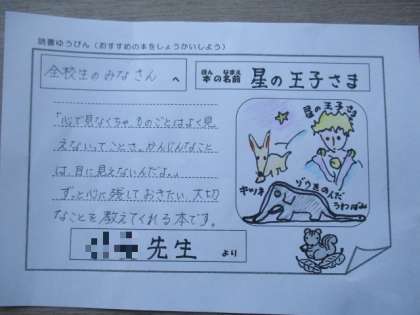 読書ゆうびん（おすすめの本をしょうかいしよう）
全校生のみなさん へ
本の名前 星の王子さま
ほん なまえ
「心で見なくちゃ、ものごとはよく見
えないってことさ。かんじんなこと
は、目に見えないんだよ。」
ずっと心に残しておきたい、大切
なことを教えてくれる本です。
星の王子さま
キツネ
ゾウをのんだ
うわばみ
先生 より